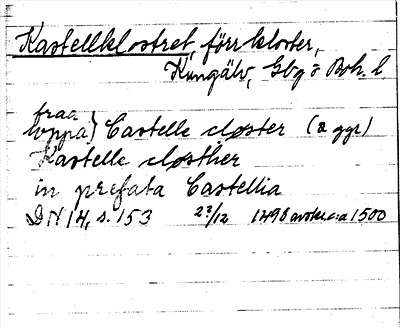 Kastellklostret, förr kloster,
Kungälv, Gbg o Boh. l
fraa
uppa} Castelle closter (2 ggr)
Kastelle closther
in prefata Castellia
DN 14, s. 153 22/12 1496 avskr. c:a 1500